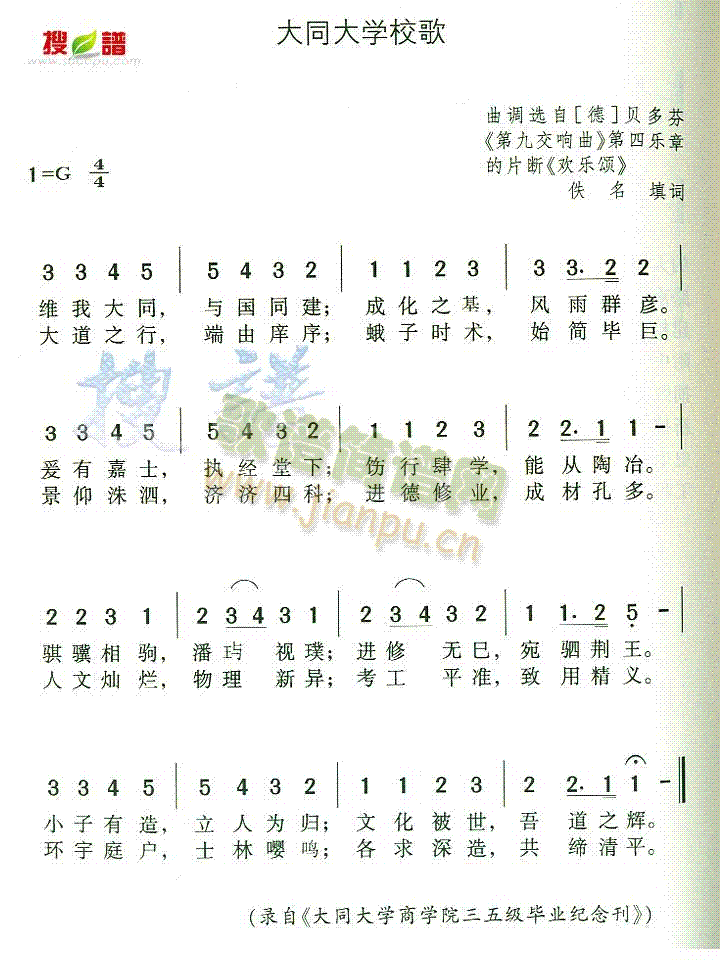 大同大学校歌
搜谱
www.sooopu.com
曲调选自[德]贝多芬
《第九交响曲》第四乐章
的片断《欢乐颂》
佚 名 填词
1=G 4/4
3 3 4 5 | 5 4 3 2 | 1 1 2 3 | 3 3. 2 2 |
维我大同， 与国同建； 成化之基， 风雨群彦。
大道之行， 端由庠序； 蛾子时术， 始简毕巨。
搜谱
歌谱简谱网
www.jianpu.cn
3 3 4 5 | 5 4 3 2 | 1 1 2 3 | 2 2. 1 1 |
爰有嘉士， 执经堂下； 饬行肆学， 能从陶冶。
景仰洙泗， 济济四科； 进德修业， 成材孔多。
2 2 3 1 | 2 3 4 3 1 | 2 3 4 3 2 | 1 1. 2 5 - |
骐骥相驹， 潘玙 视璞； 进修 无巳， 宛驷荆王。
人文灿烂， 物理 新异； 考工 平准， 致用精义。
3 3 4 5 | 5 4 3 2 | 1 1 2 3 | 2 2. 1 1 - ‖
小子有造， 立人为归； 文化被世， 吾 道之辉。
环宇庭户， 士林嘤鸣； 各求深造， 共 缔清平。
(录自《大同大学商学院三五级毕业纪念刊》)